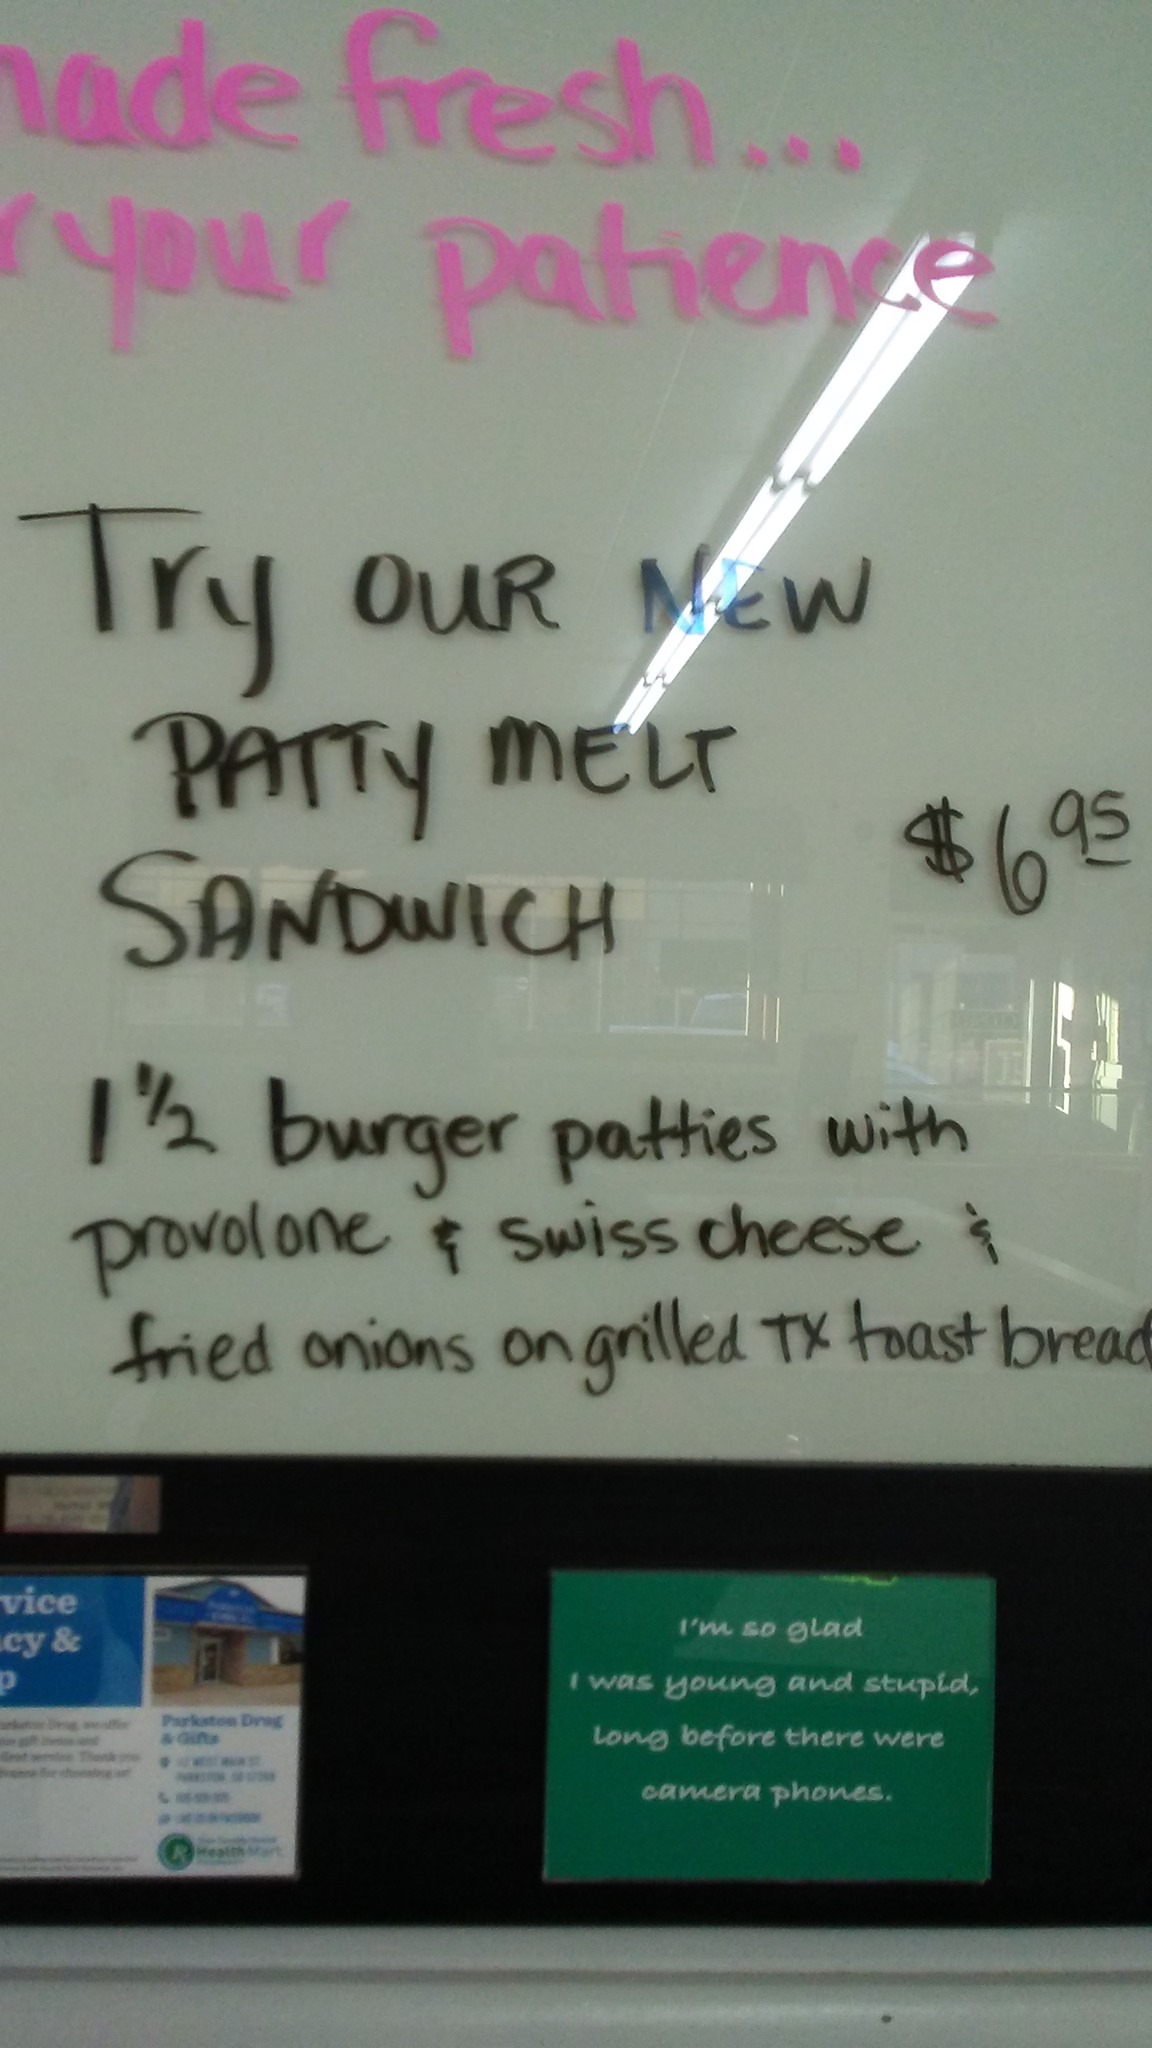 made fresh...
r your patience
Try OUR NEW
PATTY MELT
SANDWICH
$6 95
1 1/2 burger patties with
provolone & swiss cheese &
fried onions on grilled TX toast bread
vice
cy &
p
Parkston Drug
& Gifts
HealthMart
I'm so glad
I was young and stupid,
long before there were
camera phones.